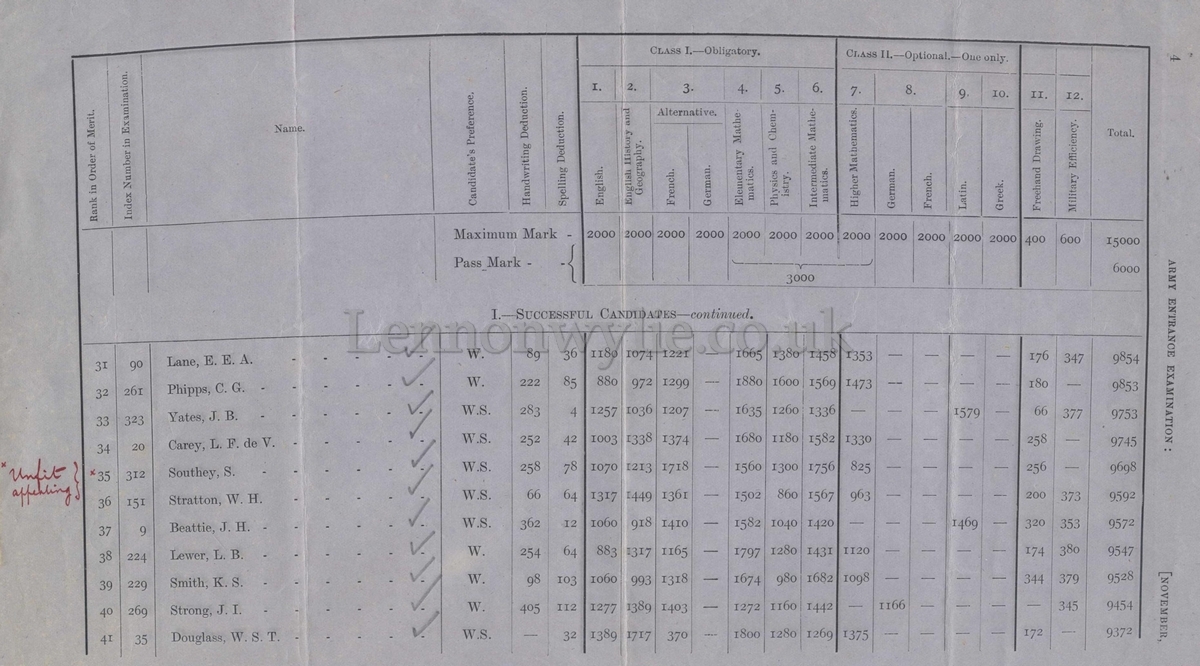 4
ARMY ENTRANCE EXAMINATION:
[NOVEMBER,
CLASS I.—Obligatory. CLASS II.—Optional.—One only.
1. 2. 3. 4. 5. 6. 7. 8. 9. 10. 11. 12.
Alternative.
Rank in Order of Merit. Index Number in Examination. Name. Candidate's Preference. Handwriting Deduction. Spelling Deduction. English. English History and Geography. French. German. Elementary Mathe- matics. Physics and Chem- istry. Intermediate Mathe- matics. Higher Mathematics. German. French. Latin. Greek. Freehand Drawing. Military Efficiency. Total.
Maximum Mark - 2000 2000 2000 2000 2000 2000 2000 2000 2000 2000 2000 2000 400 600 15000
Pass Mark - - { 3000 6000
I.—SUCCESSFUL CANDIDATES—continued.
Lennonwylie.co.uk
31 90 Lane, E. E. A. - - - - - W. 89 36 1180 1074 1221 — 1665 1380 1458 1353 — — — — 176 347 9854
32 261 Phipps, C. G. - - - - - - W. 222 85 880 972 1299 — 1880 1600 1569 1473 — — — — 180 — 9853
33 323 Yates, J. B. - - - - - - W.S. 283 4 1257 1036 1207 — 1635 1260 1336 — — — 1579 — 66 377 9753
34 20 Carey, L. F. de V. - - - - - W.S. 252 42 1003 1338 1374 — 1680 1180 1582 1330 — — — — 258 — 9745
* Unfit appealing } *35 312 Southey, S. - - - - - - W.S. 258 78 1070 1213 1718 — 1560 1300 1756 825 — — — — 256 — 9698
36 151 Stratton, W. H. - - - - - W.S. 66 64 1317 1449 1361 — 1502 860 1567 963 — — — — 200 373 9592
37 9 Beattie, J. H. - - - - - - W.S. 362 12 1060 918 1410 — 1582 1040 1420 — — — 1469 — 320 353 9572
38 224 Lewer, L. B. - - - - - - W. 254 64 883 1317 1165 — 1797 1280 1431 1120 — — — — 174 380 9547
39 229 Smith, K. S. - - - - - - W. 98 103 1060 993 1318 — 1674 980 1682 1098 — — — — 344 379 9528
40 269 Strong, J. I. - - - - - - W. 405 112 1277 1389 1403 — 1272 1160 1442 — 1166 — — — — 345 9454
41 35 Douglass, W. S. T. - - - - - W.S. — 32 1389 1717 370 — 1800 1280 1269 1375 — — — — 172 — 9372